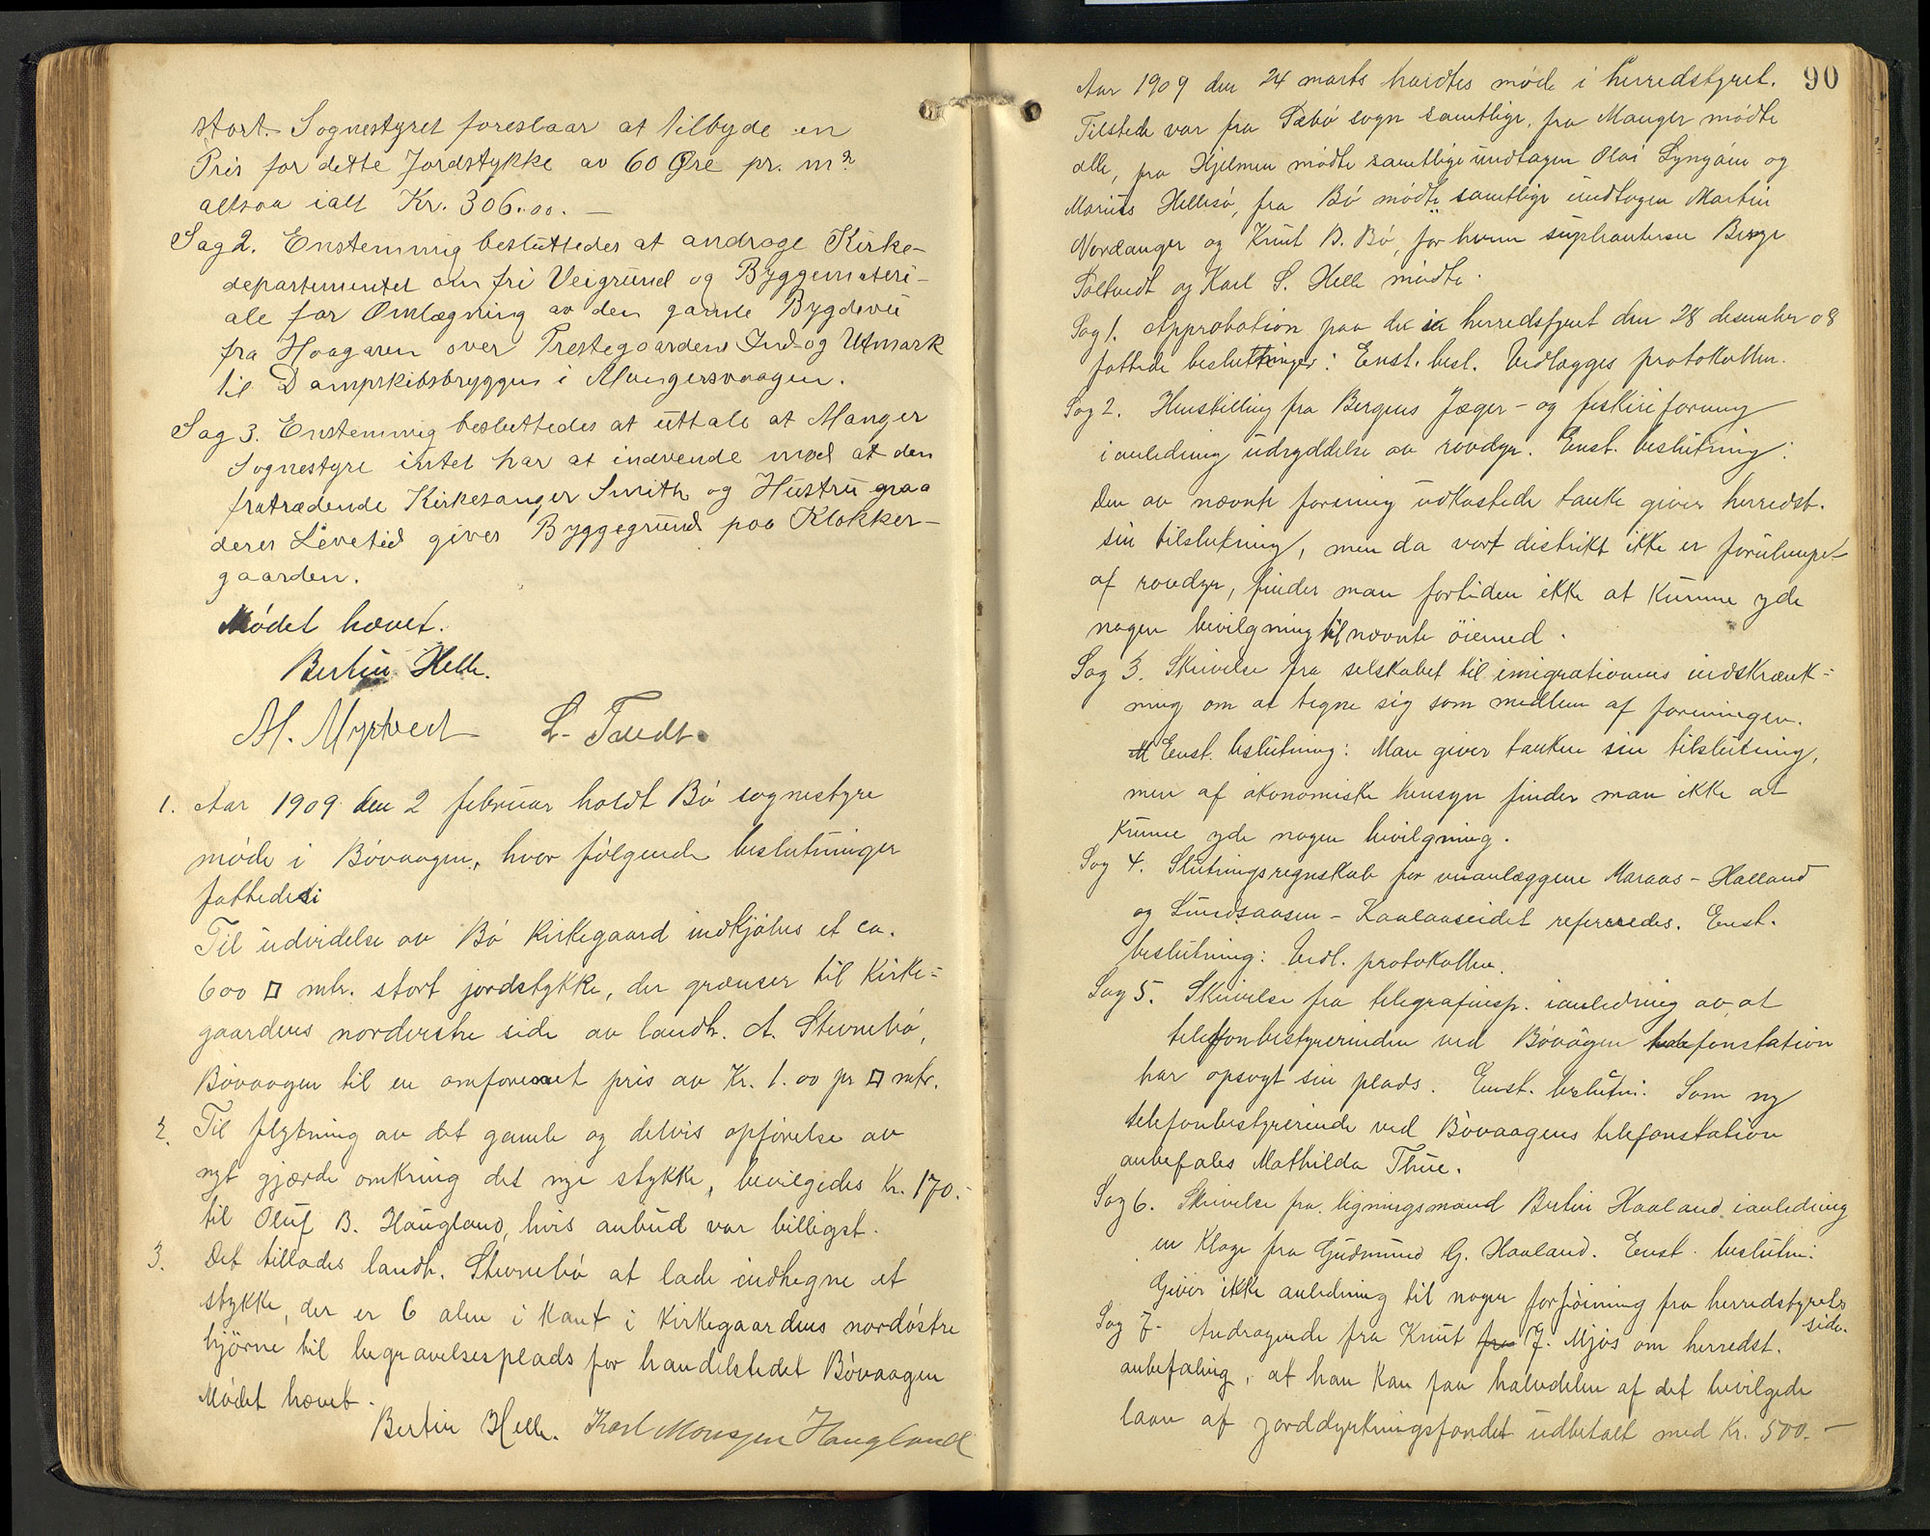 stort. Sognestyret foreslaar at tilbyde en
Pris for dette Jordstykke av 60 Øre pr. m²
altsaa ialt Kr. 306.00. —
Sag 2. Enstemmig besluttedes at androge Kirke-
departementet om fri Veigrund og Byggemateri-
ale for Omlægning av den gamle Bygdevei
fra Haagaren over Prestegaardens Ind- og Utmark
til Dampskibsbryggen i Mangersvaagen.
Sag 3. Enstemmig besluttedes at uttale at Manger
Sognestyre intet har at indvende mod at den
fratrædende Kirkesanger Smith og Hustru paa
deres Levetid gives Byggegrund paa Klokker-
gaarden.
Mødet hævet.
Bertin Helle.
M. Myrtvedt L. Tvedt.
1. Aar 1909 den 2 februar holdt Bø sognestyre
møde i Bøvaagen, hvor følgende beslutninger
fattedes:
Til udvidelse av Bø Kirkegaard indkjøbes et ca.
600 □ mtr. stort jordstykke, der grænser til Kirke-
gaardens norderste side av landh. A. Stevnebø,
Bøvaagen til en omforenet pris av Kr. 1.00 pr □ mtr.
2. Til flytning av det gamle og delvis opførelse av
nyt gjærde omkring det nye stykke, bevilgedes Kr. 170.-
til Oluf B. Haugland, hvis anbud var billigst.
3. Det tillades landh. Stevnebø at lade indhegne et
stykke, der er 6 alen i kant i Kirkegaardens nordøstre
hjørne til begravelsesplads for handelstedet Bøvaagen
Mødet hævet.
Bertin Helle. Karl Monsen Haugland
90
Aar 1909 den 24 marts holdtes møde i herredstyret.
Tilstede var fra Sæbø sogn samtlige, fra Manger mødte
alle, fra Hjelmen mødte samtlige undtagen Olai Syngøen og
Marius Hellesø, fra Bø mødte samtlige undtagen Martin
Nordanger og Knut B. Bø, for hvem supleanterne Berge
Soltvedt og Karl S. Helle mødte.
Sag 1. Approbation paa de i herredstyret den 28 desember 08
fattede beslutninger: Enst. besl. Vedlægges protokollen.
Sag 2. Henstilling fra Bergens Jæger- og fiskeriforening
i anledning udryddelse av rovdyr. Enst. beslutning:
Den av nævnte forening udkastede tanke giver herredst.
sin tilslutning, men da vort distrikt ikke er forulempet
af rovdyr, finder man fortiden ikke at kunne yde
nogen bevilgning til nævnte öiemed.
Sag 3. Skrivelse fra selskabet til imigrationens indskrænk-
ning om at tegne sig som medlem af foreningen.
Enst. beslutning: Man giver tanken sin tilslutning,
men af økonomiske hensyn finder man ikke at
kunne yde nogen bevilgning.
Sag 4. Slutningsregnskab for veianlæggene Maraas-Halland
og Lundsaasen-Kaalaaseidet refereredes. Enst.
beslutning: Vedl. protokollen.
Sag 5. Skrivelse fra telegrafinsp. i anledning av at
telefonbestyrerinden ved Bøvågen telefonstation
har opsagt sin plads. Enst. beslutn: Som ny
telefonbestyrerinde ved Bøvaagens telefonstation
anbefales Mathilda Thue.
Sag 6. Skrivelse fra ligningsmand Bertin Haaland i anledning
en Klage fra Gudmund G. Haaland. Enst. beslutn:
Giver ikke anledning til nogen forføining fra herredstyrets
side.
Sag 7. Andragende fra Knut fra J. Mjøs om herredst.
anbefaling, at han Kan faa halvdelen af det bevilgede
laan af jorddyrkningsfondet udbetalt med Kr. 500.-